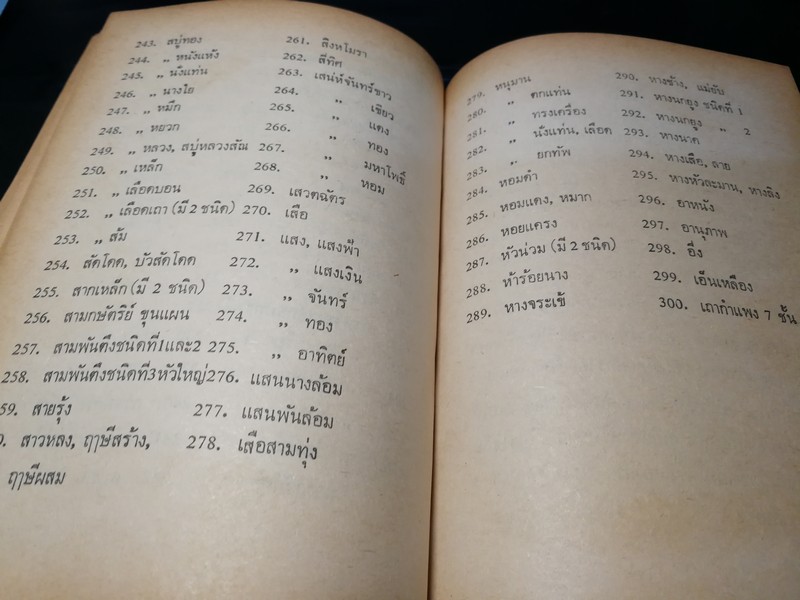 243. สบู่ทอง
244. ,, หนังแห้ง
245. ,, นั่งแท่น
246. ,, นางใย
247. ,, หมึก
248. ,, หยวก
249. ,, หลวง, สบู่หลวงสัณ
250. ,, เหล็ก
251. ,, เลือดบอน
252. ,, เลือดเถา (มี 2 ชนิด)
253. ,, ส้ม
254. สัดโดด, บัวสัดโดด
255. สากเหล็ก (มี 2 ชนิด)
256. สามกษัตริย์ ขุนแผน
257. สามพันตึงชนิดที่1และ2
258. สามพันตึงชนิดที่3หัวใหญ่
59. สายรุ้ง
0. สาวหลง, ฤาษีสร้าง,
ฤาษีผสม
261. สิงหโมรา
262. สีทิศ
263. เสน่ห์จันทร์ขาว
264. ,, เขียว
265. ,, แดง
266. ,, ทอง
267. ,, มหาโพธิ์
268. ,, หอม
269. เสวตฉัตร
270. เสือ
271. แสง, แสงฟ้า
272. ,, แสงเงิน
273. ,, จันทร์
274. ,, ทอง
275. ,, อาทิตย์
276. แสนนางล้อม
277. แสนพันล้อม
278. เสือสามทุ่ง
279. หนุมาน
280. ,, ตกแท่น
281. ,, ทรงเครื่อง
282. ,, นั่งแท่น, เลือด
283. ,, ยกทัพ
284. หอมดำ
285. หอมแดง, หมาก
286. หอยแครง
287. หัวน่วม (มี 2 ชนิด)
288. ห้าร้อยนาง
289. หางจระเข้
290. หางช้าง, แม่ยับ
291. หางนกยูง ชนิดที่ 1
292. หางนกยูง ,, 2
293. หางนาค
294. หางเสือ, ลาย
295. หางหัวละมาน, หางลิง
296. อาหนัง
297. อานุภาพ
298. อึ่ง
299. เอ็นเหลือง
300. เถากำแพง 7 ชั้น